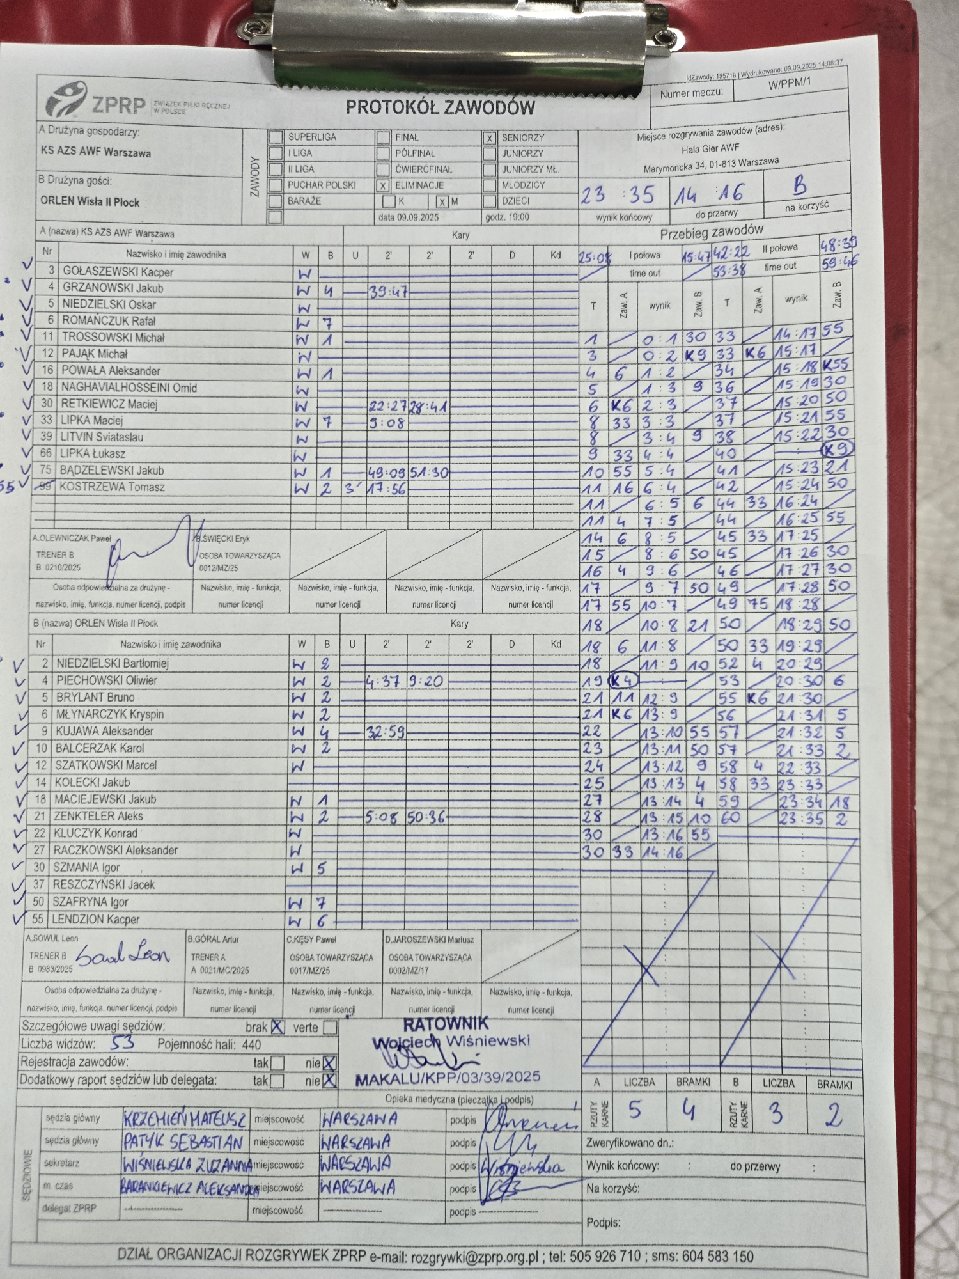 Wydrukowano: 09.09.2025 14:06:37
ZPRP ZWIĄZEK PIŁKI RĘCZNEJ W POLSCE
PROTOKÓŁ ZAWODÓW
Numer meczu: W/PPM/1
A Drużyna gospodarzy:
KS AZS AWF Warszawa
B Drużyna gości:
ORLEN Wisła II Płock
ZAWODY
SUPERLIGA FINAŁ x SENIORZY
I LIGA PÓŁFINAŁ JUNIORZY
II LIGA ĆWIERĆFINAŁ JUNIORZY MŁ.
PUCHAR POLSKI x ELIMINACJE MŁODZICY
BARAŻE K x M DZIECI
data 09.09.2025 godz. 19:00
Miejsce rozgrywania zawodów (adres):
Hala Gier AWF
Marymoncka 34, 01-813 Warszawa
23 : 35 14 : 16 B
wynik końcowy do przerwy na korzyść
A (nazwa) KS AZS AWF Warszawa Kary
Nr Nazwisko i imię zawodnika W B U 2' 2' 2' D Kd
3 GOŁASZEWSKI Kacper W
4 GRZANOWSKI Jakub W 4 39:47
5 NIEDZIELSKI Oskar W
6 ROMAŃCZUK Rafał W 7
11 TROSSOWSKI Michał W 1
12 PAJĄK Michał W
16 POWAŁA Aleksander W 1
18 NAGHAVIALHOSSEINI Omid W
30 RETKIEWICZ Maciej W 22:27 28:41
33 LIPKA Maciej W 7 9:08
39 LITVIN Sviataslau W
66 LIPKA Łukasz W
75 BĄDZELEWSKI Jakub W 1 49:09 51:30
55 99 KOSTRZEWA Tomasz W 2 3' 17:56
A.OLEWNICZAK Paweł
TRENER B
B 0210/2025
B.ŚWIĘCKI Eryk
OSOBA TOWARZYSZĄCA
0012/MZ/25
Osoba odpowiedzialna za drużynę - nazwisko, imię, funkcja, numer licencji, podpis
Nazwisko, imię - funkcja, numer licencji
Nazwisko, imię - funkcja, numer licencji
Nazwisko, imię - funkcja, numer licencji
Nazwisko, imię - funkcja, numer licencji
B (nazwa) ORLEN Wisła II Płock Kary
Nr Nazwisko i imię zawodnika W B U 2' 2' 2' D Kd
2 NIEDZIELSKI Bartłomiej W 2
4 PIECHOWSKI Oliwier W 2 4:37 9:20
5 BRYLANT Bruno W 2
6 MŁYNARCZYK Kryspin W 2
9 KUJAWA Aleksander W 4 32:59
10 BALCERZAK Karol W 2
12 SZATKOWSKI Marcel W
14 KOLECKI Jakub
18 MACIEJEWSKI Jakub W 1
21 ZENKTELER Aleks W 2 5:08 50:36
22 KLUCZYK Konrad W
27 RACZKOWSKI Aleksander W
30 SZMANIA Igor W 5
37 RESZCZYŃSKI Jacek
50 SZAFRYNA Igor W 7
55 LENDZION Kacper W 6
A.SOWUL Leon
TRENER B
B 0983/2025
Sowul Leon
B.GÓRAL Artur
TRENER A
A 0021/MC/2025
C.KĘSY Paweł
OSOBA TOWARZYSZĄCA
0017/MZ/25
D.JAROSZEWSKI Mariusz
OSOBA TOWARZYSZĄCA
0002/MZ/17
Osoba odpowiedzialna za drużynę - nazwisko, imię, funkcja, numer licencji, podpis
Nazwisko, imię - funkcja, numer licencji
Nazwisko, imię - funkcja, numer licencji
Nazwisko, imię - funkcja, numer licencji
Nazwisko, imię - funkcja, numer licencji
Szczegółowe uwagi sędziów: brak X verte
Liczba widzów: 53 Pojemność hali: 440
Rejestracja zawodów: tak nie X
Dodatkowy raport sędziów lub delegata: tak nie X
RATOWNIK
Wojciech Wiśniewski
MAKALU/KPP/03/39/2025
Opieka medyczna (pieczątka i podpis)
SĘDZIOWIE
sędzia główny KRZEMIEŃ MATEUSZ miejscowość WARSZAWA podpis
sędzia główny PATYK SEBASTIAN miejscowość WARSZAWA podpis
sekretarz WIŚNIEWSKA ZUZANNA miejscowość WARSZAWA podpis Wiśniewska
m. czas BARANKIEWICZ ALEKSANDRA miejscowość WARSZAWA podpis
delegat ZPRP miejscowość podpis
Przebieg zawodów
25:08 I połowa 15:47 42:22 II połowa 48:39
time out 53:38 time out 59:46
T Zaw. A wynik Zaw. B T Zaw. A wynik Zaw. B
1 0:1 30 33 14:17 55
3 0:2 K9 33 K6 15:17
4 6 1:2 34 15:18 K55
5 1:3 9 36 15:19 30
6 K6 2:3 37 15:20 50
8 33 3:3 37 15:21 55
8 3:4 9 38 15:22 30
9 33 4:4 40 K9
10 55 5:4 41 15:23 21
11 16 6:4 42 15:24 50
11 6:5 6 44 33 16:24
11 4 7:5 44 16:25 55
14 6 8:5 45 33 17:25
15 8:6 50 45 17:26 30
16 4 9:6 46 17:27 30
17 9:7 50 49 17:28 50
17 55 10:7 49 75 18:28
18 10:8 21 50 18:29 50
18 6 11:8 50 33 19:29
18 11:9 10 52 4 20:29
19 K4 53 20:30 6
21 11 12:9 55 K6 21:30
21 K6 13:9 56 21:31 5
22 13:10 55 57 21:32 5
23 13:11 50 57 21:33 2
24 13:12 9 58 4 22:33
25 13:13 4 58 33 23:33
27 13:14 4 59 23:34 18
28 13:15 10 60 23:35 2
30 13:16 55
30 33 14:16
A LICZBA BRAMKI B LICZBA BRAMKI
RZUTY KARNE 5 4 RZUTY KARNE 3 2
Zweryfikowano dn.:
Wynik końcowy: : do przerwy :
Na korzyść:
Podpis:
DZIAŁ ORGANIZACJI ROZGRYWEK ZPRP e-mail: rozgrywki@zprp.org.pl ; tel: 505 926 710 ; sms: 604 583 150